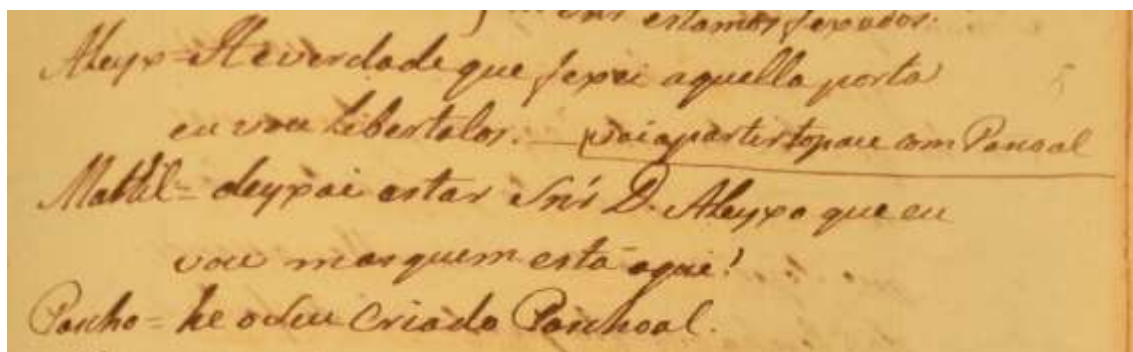 estamos fexados.
Aleyx= He verdade que fexei aquella porta
eu vou libertalos. vai apartir topau com Pascoal
Matil= deyxai estar Snr D. Aleyxo que eu
vou mas quem está aqui!
Pascho= he o seu Criado Paschoal.